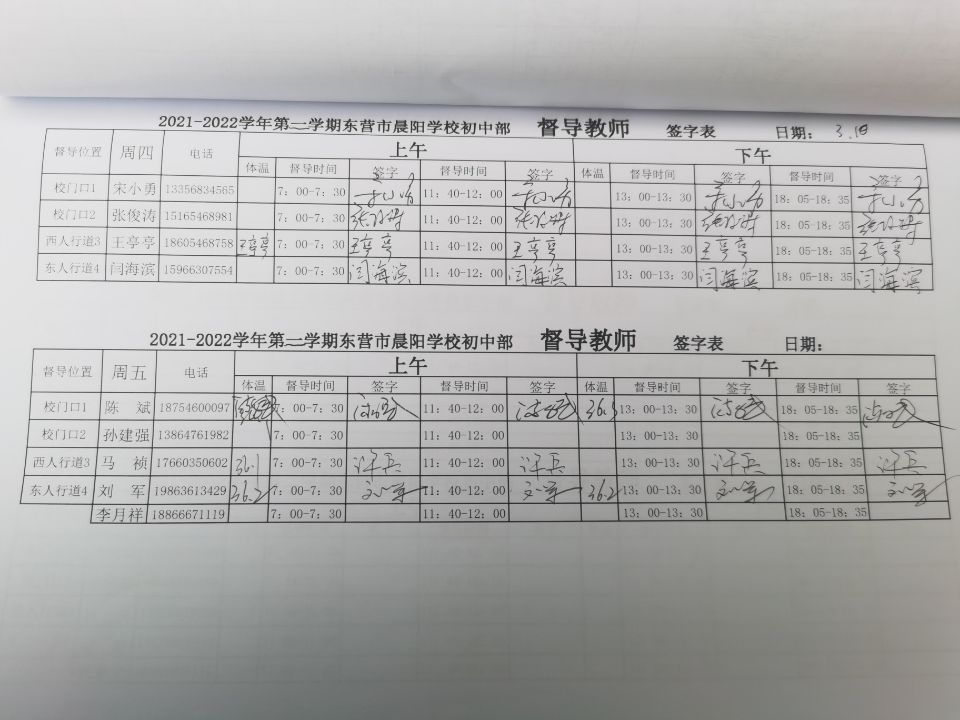 2021-2022学年第二学期东营市晨阳学校初中部 督导教师 签字表 日期：
督导位置 周四 电话 上午 下午
体温 督导时间 签字 督导时间 签字 体温 督导时间 签字 督导时间 签字
校门口1 宋小勇 13356834565 7：00-7：30 11：40-12：00 13：00-13：30 18：05-18：35
校门口2 张俊涛 15165468981 7：00-7：30 张俊涛 11：40-12：00 张俊涛 13：00-13：30 张俊涛 18：05-18：35 张俊涛
西人行道3 王亭亭 18605468758 王亭亭 7：00-7：30 王亭亭 11：40-12：00 王亭亭 13：00-13：30 王亭亭 18：05-18：35 王亭亭
东人行道4 闫海滨 15966307554 7：00-7：30 闫海滨 11：40-12：00 闫海滨 13：00-13：30 闫海滨 18：05-18：35 闫海滨
2021-2022学年第二学期东营市晨阳学校初中部 督导教师 签字表 日期：
督导位置 周五 电话 上午 下午
体温 督导时间 签字 督导时间 签字 体温 督导时间 签字 督导时间 签字
校门口1 陈 斌 18754600097 7：00-7：30 11：40-12：00 36.3 13：00-13：30 18：05-18：35
校门口2 孙建强 13864761982 7：00-7：30 11：40-12：00 13：00-13：30 18：05-18：35
西人行道3 马 祯 17660350602 36.1 7：00-7：30 许兵 11：40-12：00 许兵 13：00-13：30 许兵 18：05-18：35 许兵
东人行道4 刘 军 19863613429 36.2 7：00-7：30 刘军 11：40-12：00 刘军 36.2 13：00-13：30 刘军 18：05-18：35 刘军
李月祥 18866671119 7：00-7：30 11：40-12：00 13：00-13：30 18：05-18：35